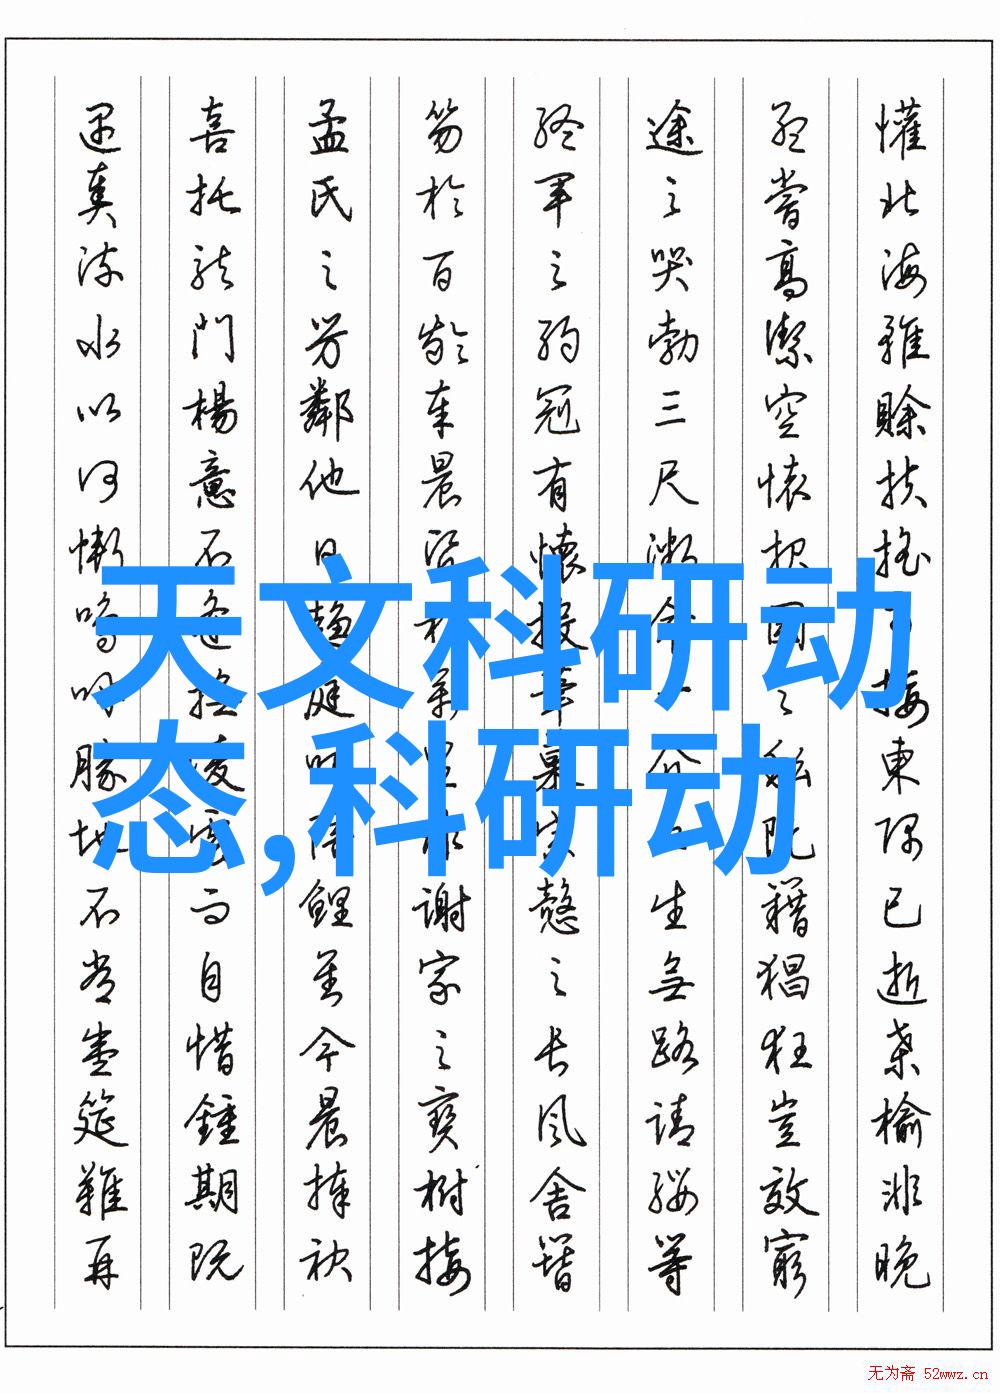 懽北海雖賒扶搖可接東隅已逝桑榆非晚
孟嘗高潔空懷报國之私阮籍猖狂豈效窮
途之哭勃三尺微命一介书生無路請纓等
終軍之弱冠有懷投筆慕宗愨之長風舍簪
笏於百齡奉晨昏於萬里非謝家之寶樹接
孟氏之芳鄰他日趨庭叨陪鯉對今晨捧袂
喜托龍門楊意不逢撫凌雲而自惜鍾期既
遇奏流水以何慚嗚呼勝地不常盛筵難再
天文科研动
态,科研动
无为斋 52wwz.cn